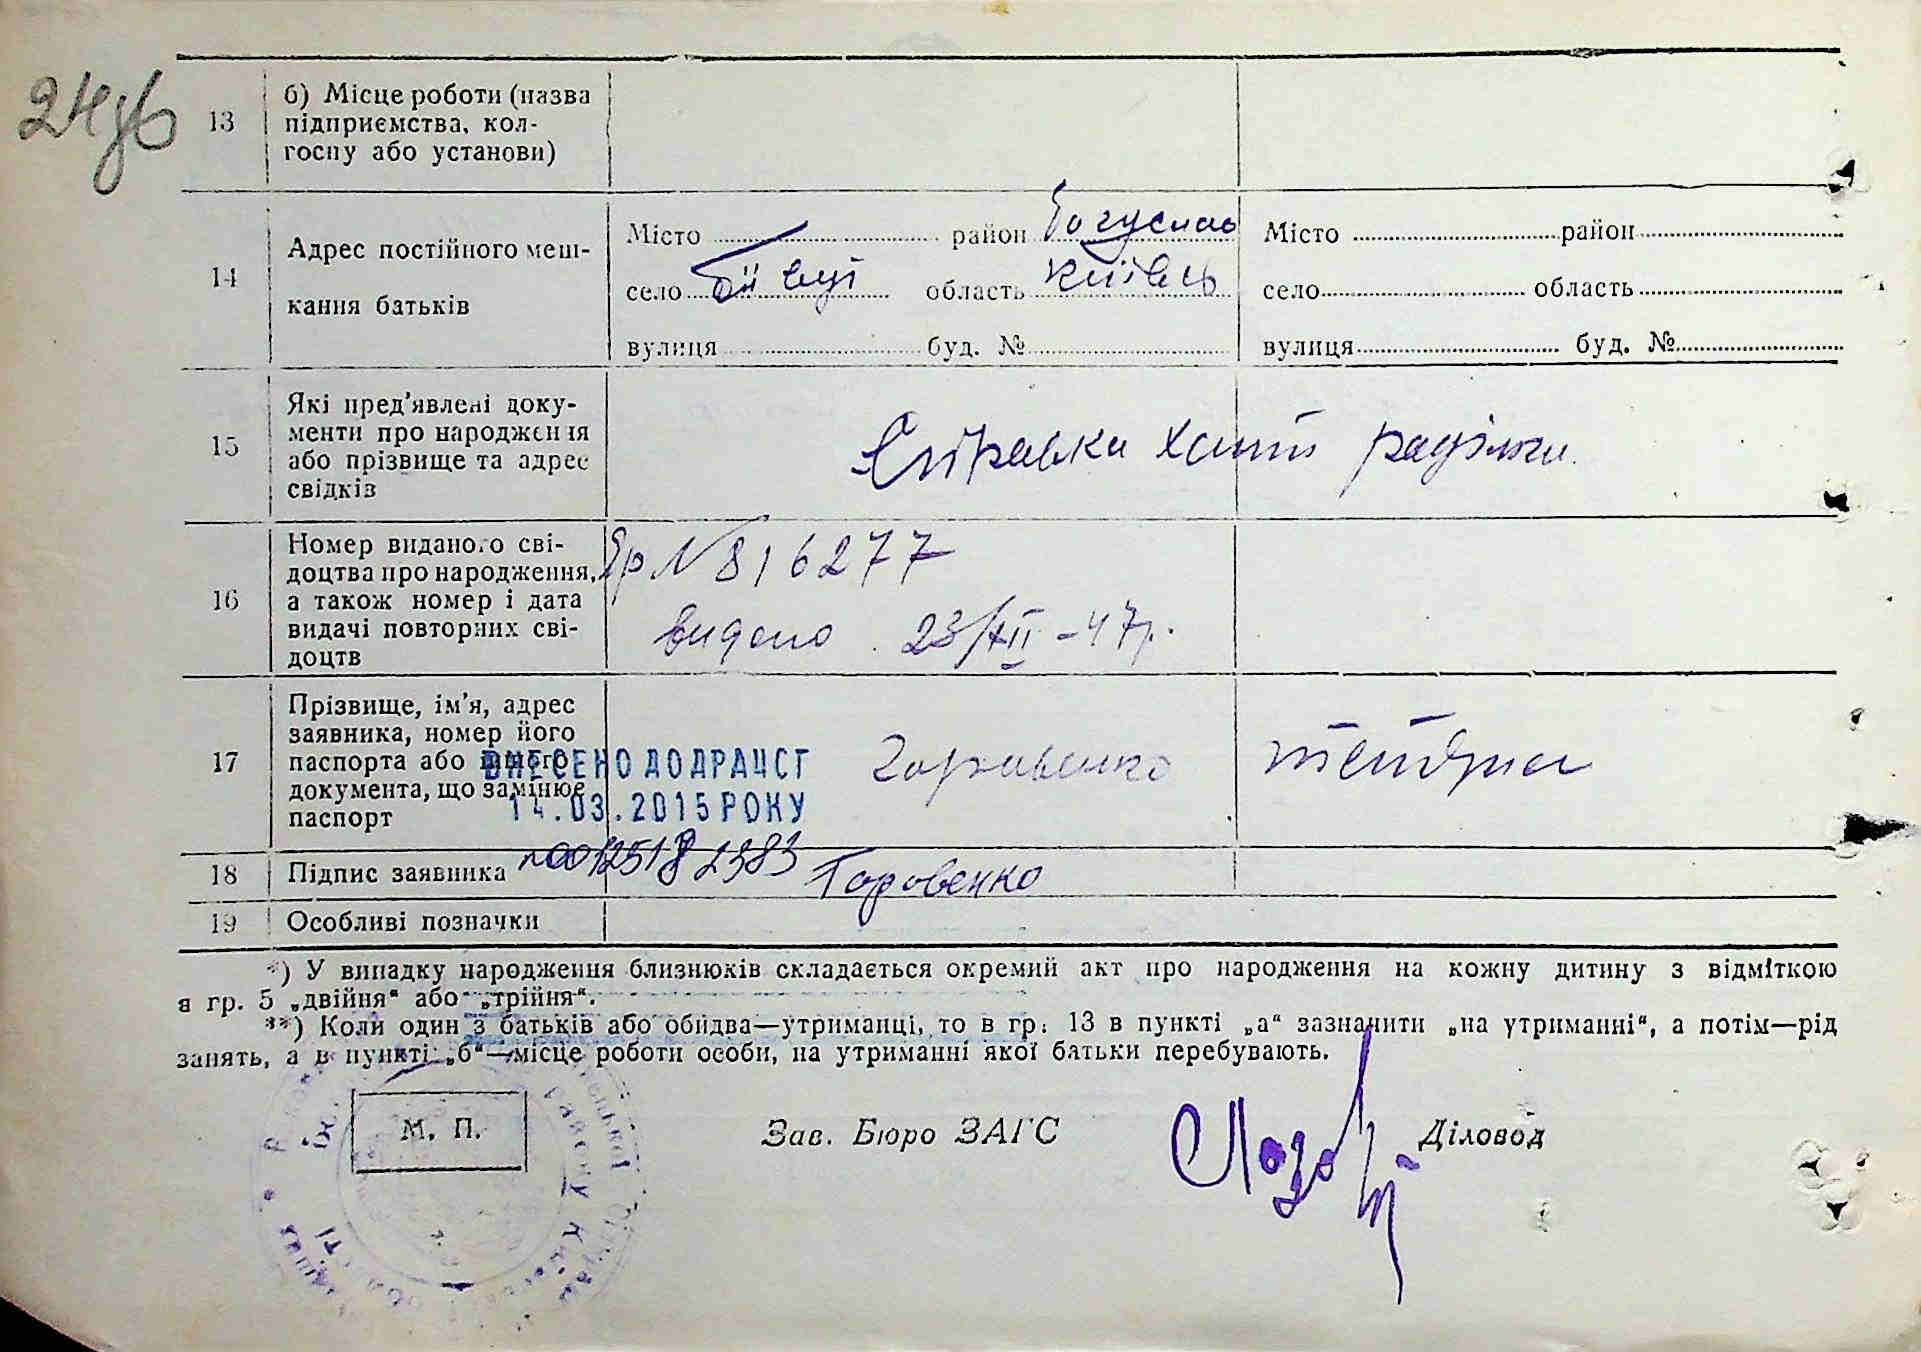 24
13
б) Місце роботи (назва
підприємства, кол-
госпу або установи)
14
Адрес постійного меш-
кання батьків
Місто район Богуслав
село Бієвці область Київсь
вулиця буд. №
Місто район
село область
вулиця буд. №
15
Які пред'явлені доку-
менти про народження
або прізвище та адрес
свідків
Справка хати
16
Номер виданого сві-
доцтва про народження,
а також номер і дата
видачі повторних сві-
доцтв
№ 816277
видано 23/XII-47р.
17
Прізвище, ім'я, адрес
заявника, номер його
паспорта або іншого
документа, що замінює
паспорт
ВНЕСЕНО ДО ДРАЦСГ
14.03.2015 РОКУ
Горовенко
18
Підпис заявника
№00125182383
Горовенко
19
Особливі позначки
*) У випадку народження близнюків складається окремий акт про народження на кожну дитину з відміткою
в гр. 5 „двійня“ або „трійня“.
**) Коли один з батьків або обидва—утриманці, то в гр. 13 в пункті „а“ зазначити „на утриманні“, а потім—рід
занять, а в пункті „б“—місце роботи особи, на утриманні якої батьки перебувають.
М. П.
Зав. Бюро ЗАГС
Діловод